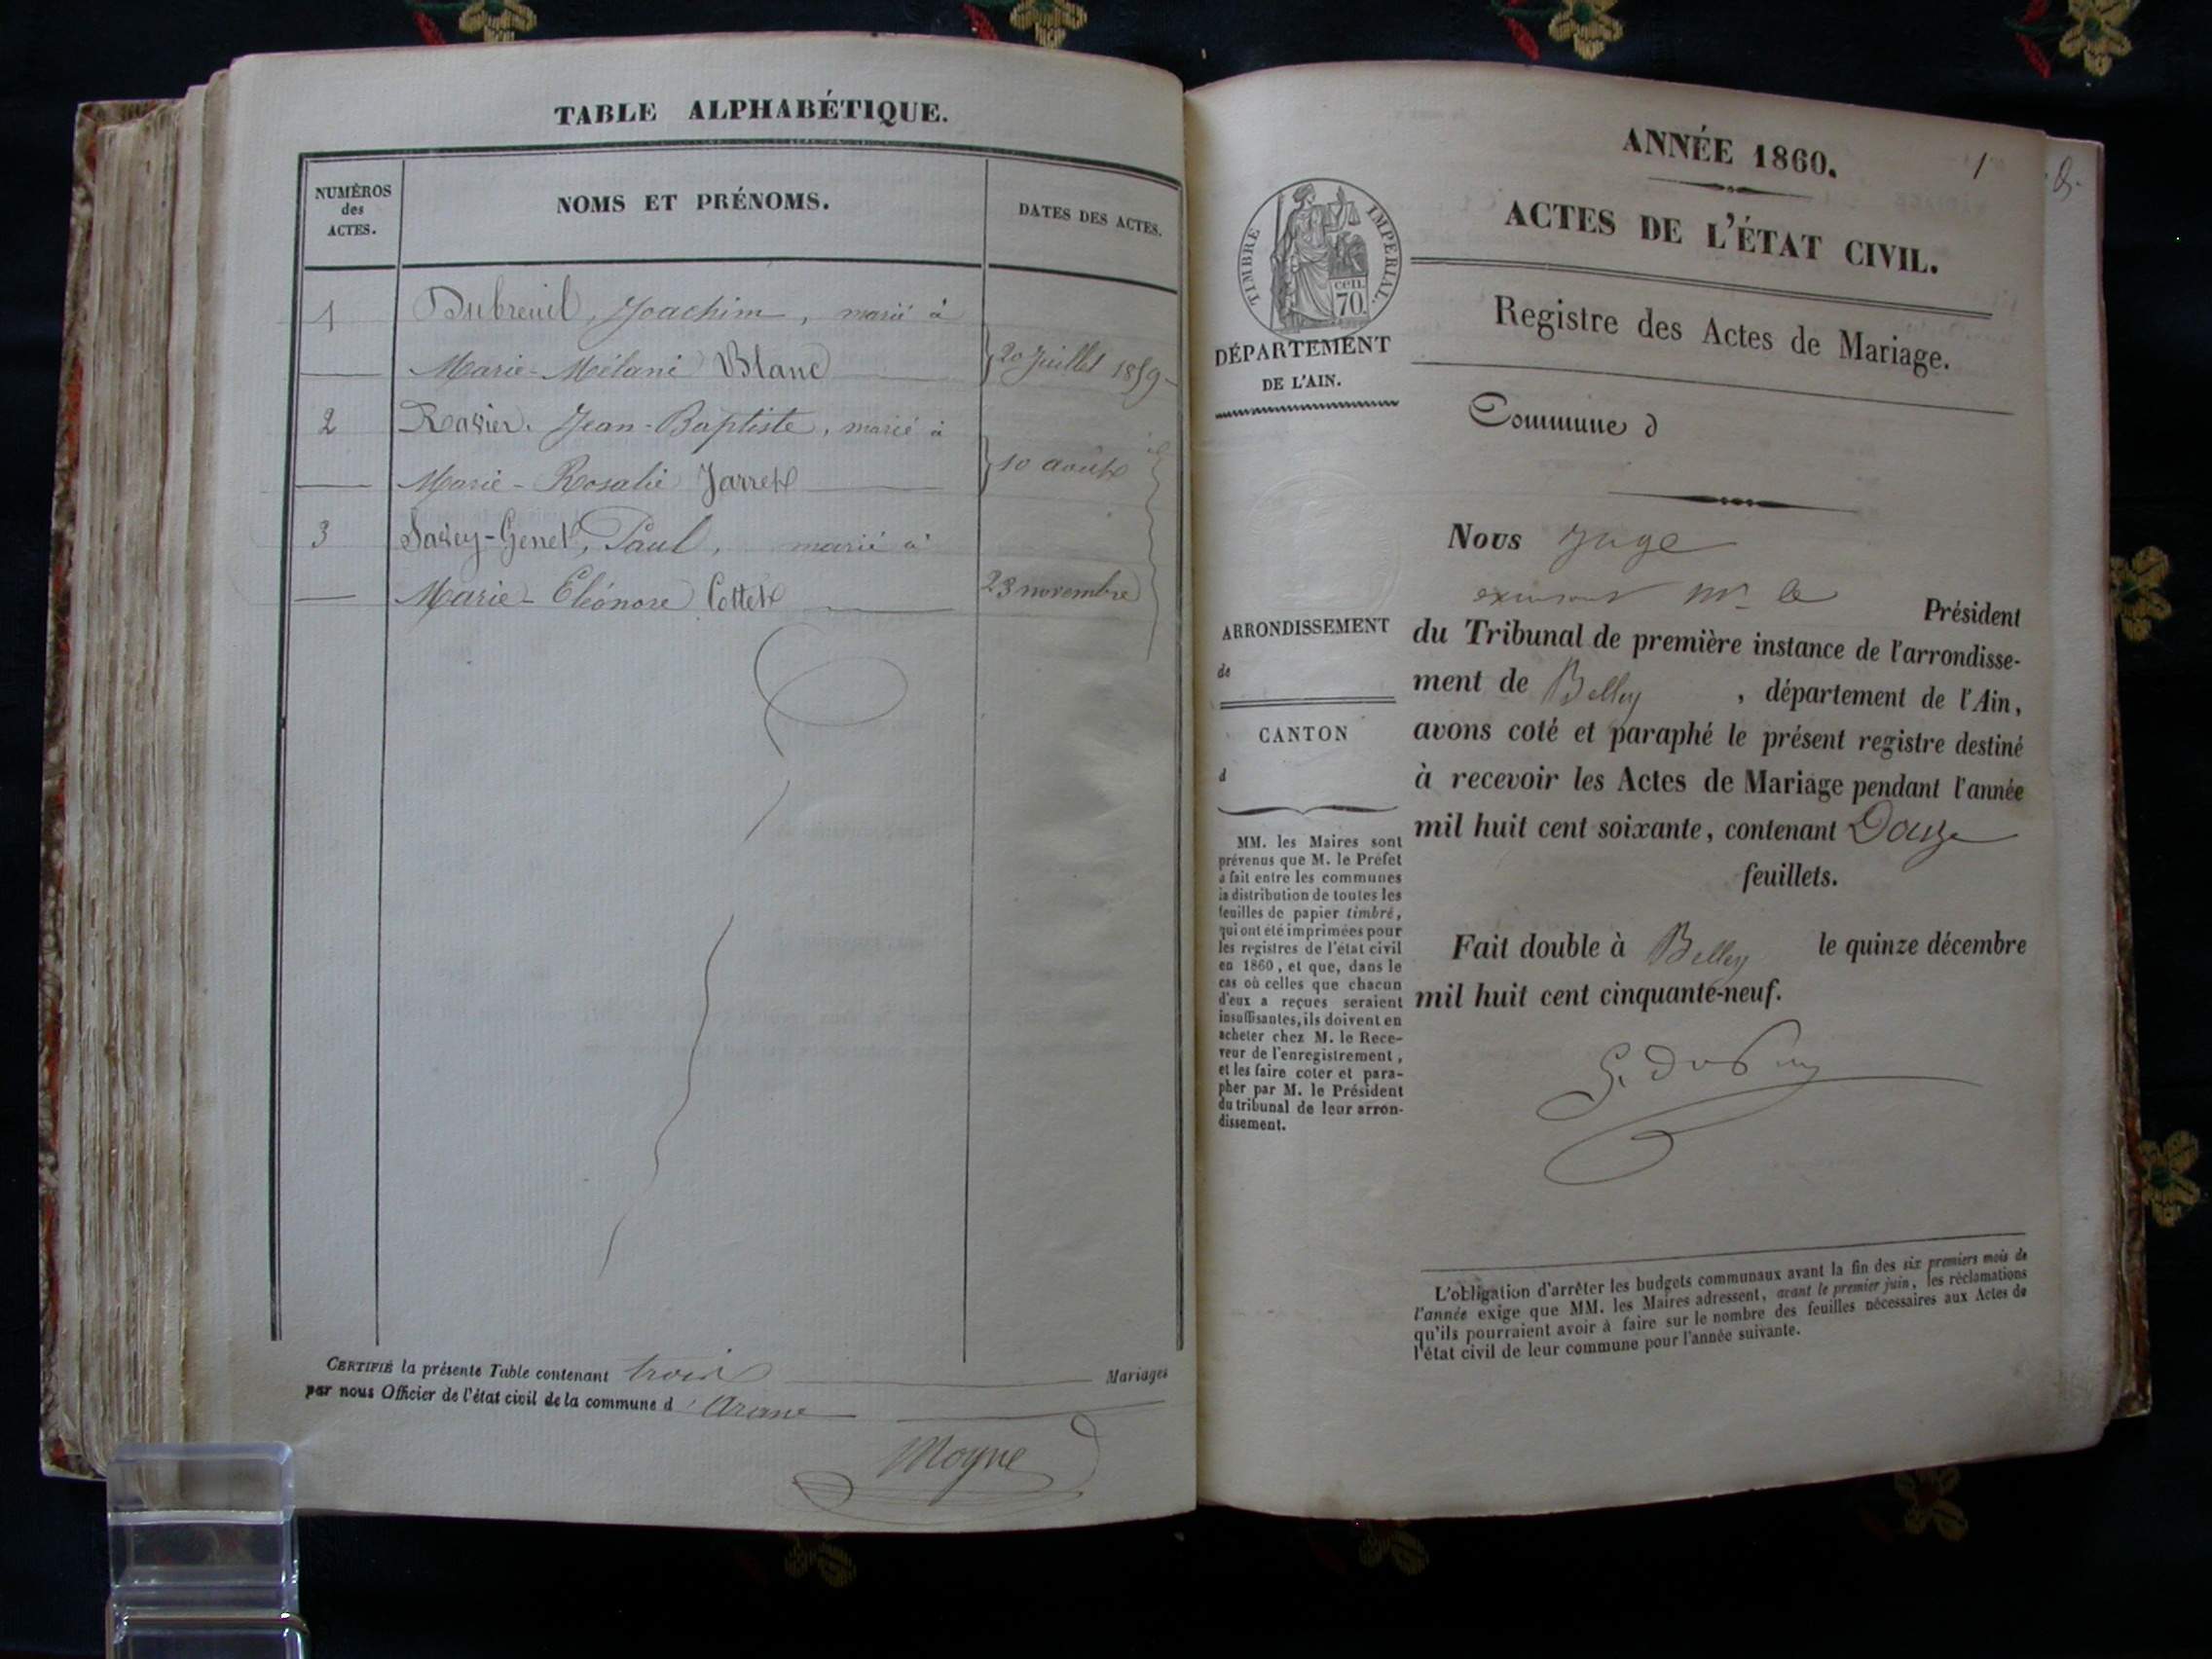 TABLE ALPHABÉTIQUE.
NUMÉROS
des
ACTES.
NOMS ET PRÉNOMS.
DATES DES ACTES.
1 Dubreuil, Joachim, marié à
Marie-Mélani Blanc 20 Juillet 1859
2 Ravier. Jean-Baptiste, marié à
Marie-Rosalie Jarret 10 août
3 Savey-Genet, Paul, marié à
Marie-Eléonore Cottet 23 novembre
CERTIFIÉ la présente Table contenant trois Mariages
par nous Officier de l'état civil de la commune d'Aranc
Moyne
ANNÉE 1860.
1
ACTES DE L'ÉTAT CIVIL.
TIMBRE IMPERIAL.
CEN.
70.
Registre des Actes de Mariage.
DÉPARTEMENT
DE L'AIN.
Commune d
Nous Juge
Mr le Président
du Tribunal de première instance de l'arrondisse-
ment de Belley, département de l'Ain,
avons coté et paraphé le présent registre destiné
à recevoir les Actes de Mariage pendant l'année
mil huit cent soixante, contenant Douze
feuillets.
Fait double à Belley le quinze décembre
mil huit cent cinquante-neuf.
ARRONDISSEMENT
de
CANTON
d
MM. les Maires sont
prévenus que M. le Préfet
a fait entre les communes
la distribution de toutes les
feuilles de papier timbré,
qui ont été imprimées pour
les registres de l'état civil
en 1860, et que, dans le
cas où celles que chacun
d'eux a reçues seraient
insuffisantes, ils doivent en
acheter chez M. le Rece-
veur de l'enregistrement,
et les faire coter et para-
pher par M. le Président
du tribunal de leur arron-
dissement.
L'obligation d'arrêter les budgets communaux avant la fin des six premiers mois de
l'année exige que MM. les Maires adressent, avant le premier juin, les réclamations
qu'ils pourraient avoir à faire sur le nombre des feuilles nécessaires aux Actes de
l'état civil de leur commune pour l'année suivante.